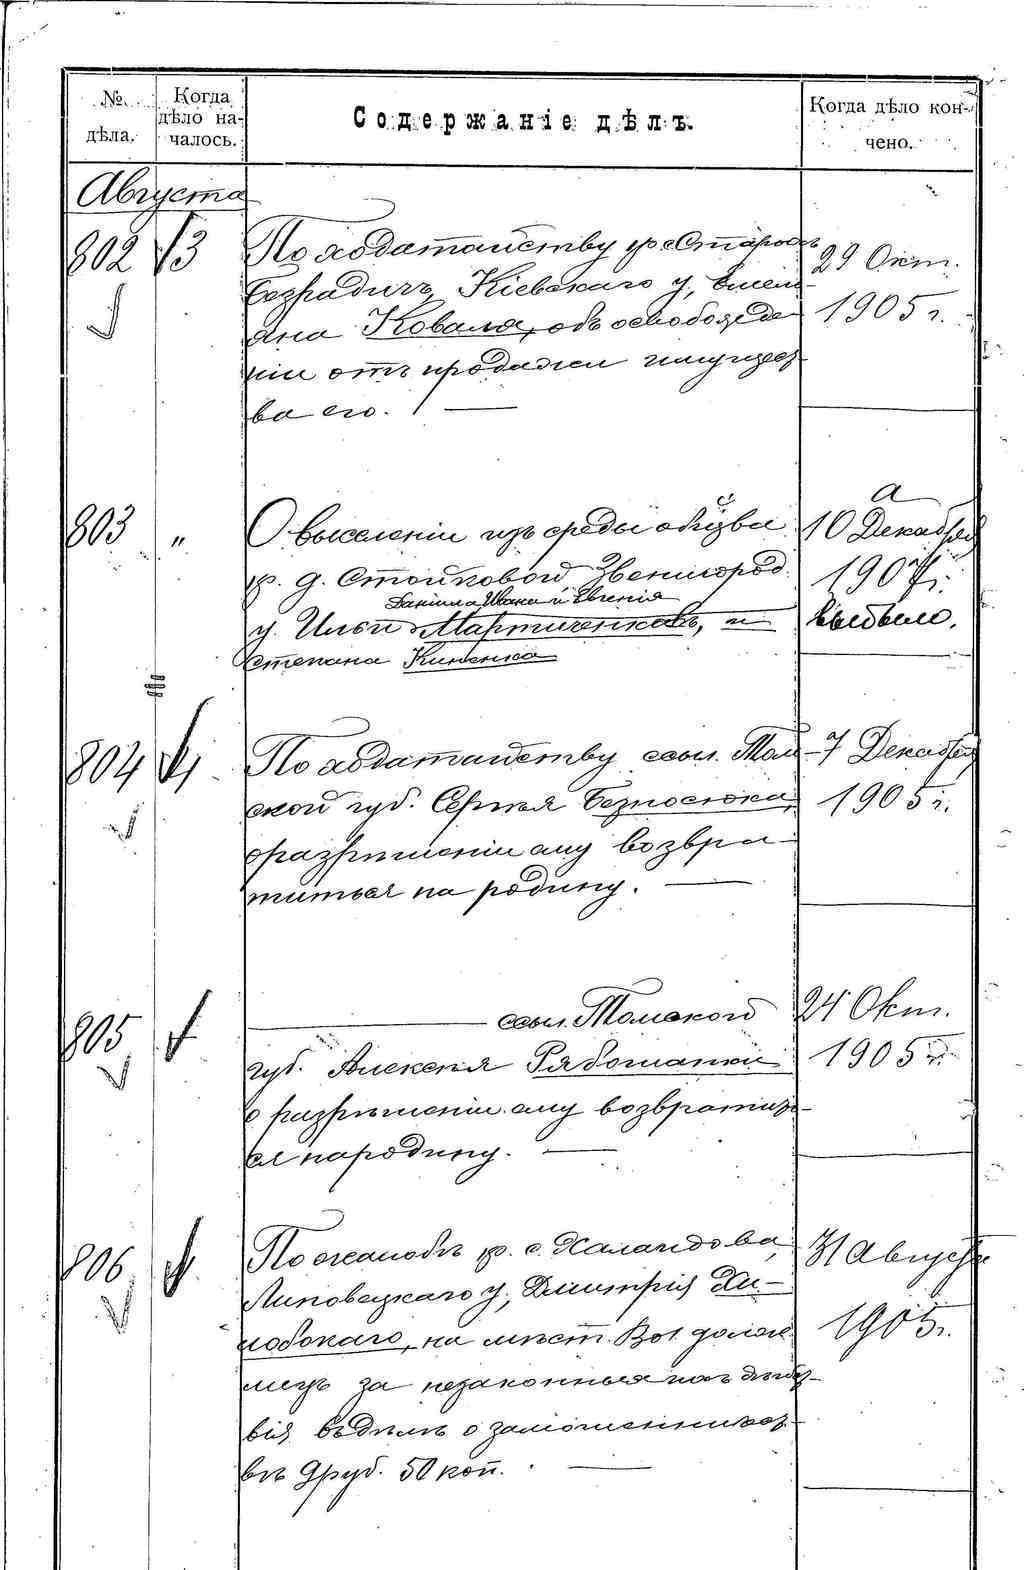 № дѣла.
Когда дѣло на-
чалось.
Содержаніе дѣлъ.
Когда дѣло кон-
чено.
Августа
802 13 По ходатайству кр. с. Староі
Безрадичъ, Кіевскаго у, Емель-
яна Коваля, объ освобожде
ніи отъ продажи имущест-
ва его.
29 Окт.
1905 г.
803 " О выселеніи изъ среды общва
кр. д. Стойковой Звенигород.
Даніила Ивана и Евгенія
у. Ильи Мартиченковъ, и
Степана Киненка
а
10 Декабря
1907 г.
выбыло.
804 14 По ходатайству ссыл. Том-
ской губ. Сергѣя Безносюка,
о разрѣшеніи ему возвра-
титься на родину.
7 Декабря
1905 г.
805 ссыл. Томской
губ. Алексѣя Рябошапки
о разрѣшеніи ему возвратить-
ся на родину.
24 Окт.
1905 г.
806 По жалобѣ кр. с. Халаидова,
Липовецкаго у, Дмитрія Хи-
лобокаго, на мѣст. Вол. долж.
лицъ за незаконныя ихъ дѣйст-
вія въ дѣлѣ о
въ 9 руб. 50 коп.
31 Августа
1905 г.